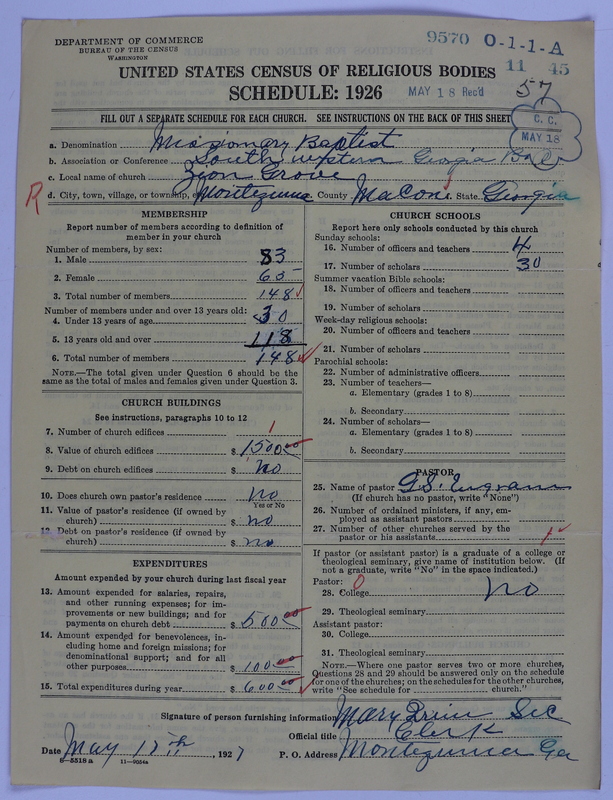 DEPARTMENT OF COMMERCE
BUREAU OF THE CENSUS
WASHINGTON
9570 O-1-1-A
11 45
UNITED STATES CENSUS OF RELIGIOUS BODIES
SCHEDULE: 1926
MAY 18 Rec'd
57
FILL OUT A SEPARATE SCHEDULE FOR EACH CHURCH. SEE INSTRUCTIONS ON THE BACK OF THIS SHEET
C. C.
MAY 18
a. Denomination Missionary Baptist
b. Association or Conference South western Georgia
c. Local name of church Zion Grove
R
d. City, town, village, or township, Montezuma County Macon State Georgia
MEMBERSHIP
Report number of members according to definition of
member in your church
Number of members, by sex:
1. Male 83
2. Female 65
3. Total number of members 148
Number of members under and over 13 years old:
4. Under 13 years of age 30
5. 13 years old and over 118
6. Total number of members 148
NOTE.—The total given under Question 6 should be the
same as the total of males and females given under Question 3.
CHURCH BUILDINGS
See instructions, paragraphs 10 to 12
7. Number of church edifices 1
8. Value of church edifices $ 1500.00
9. Debt on church edifices $ No
10. Does church own pastor's residence No
Yes or No
11. Value of pastor's residence (if owned by
church) $ No
12. Debt on pastor's residence (if owned by
church) $ No
EXPENDITURES
Amount expended by your church during last fiscal year
13. Amount expended for salaries, repairs,
and other running expenses; for im-
provements or new buildings; and for
payments on church debt $ 500.00
14. Amount expended for benevolences, in-
cluding home and foreign missions; for
denominational support; and for all
other purposes $ 100.00
15. Total expenditures during year $ 600.00
CHURCH SCHOOLS
Report here only schools conducted by this church
Sunday schools:
16. Number of officers and teachers 4
17. Number of scholars 30
Summer vacation Bible schools:
18. Number of officers and teachers
19. Number of scholars
Week-day religious schools:
20. Number of officers and teachers
21. Number of scholars
Parochial schools:
22. Number of administrative officers
23. Number of teachers—
a. Elementary (grades 1 to 8)
b. Secondary
24. Number of scholars—
a. Elementary (grades 1 to 8)
b. Secondary
PASTOR
25. Name of pastor G.S. Ingram
(If church has no pastor, write "None")
26. Number of ordained ministers, if any, em-
ployed as assistant pastors
27. Number of other churches served by the
pastor or his assistants 1
If pastor (or assistant pastor) is a graduate of a college or
theological seminary, give name of institution below. (If
not a graduate, write "No" in the space indicated.)
Pastor: 0
28. College No
29. Theological seminary
Assistant pastor:
30. College
31. Theological seminary
NOTE.—Where one pastor serves two or more churches,
Questions 28 and 29 should be answered only on the schedule
for one of the churches; on the schedules for the other churches,
write "See schedule for church."
Signature of person furnishing information Mary Sec
Official title Clerk
Date May 17th, 1927 P. O. Address Montezuma Ga
8—5518 a 11—9054a